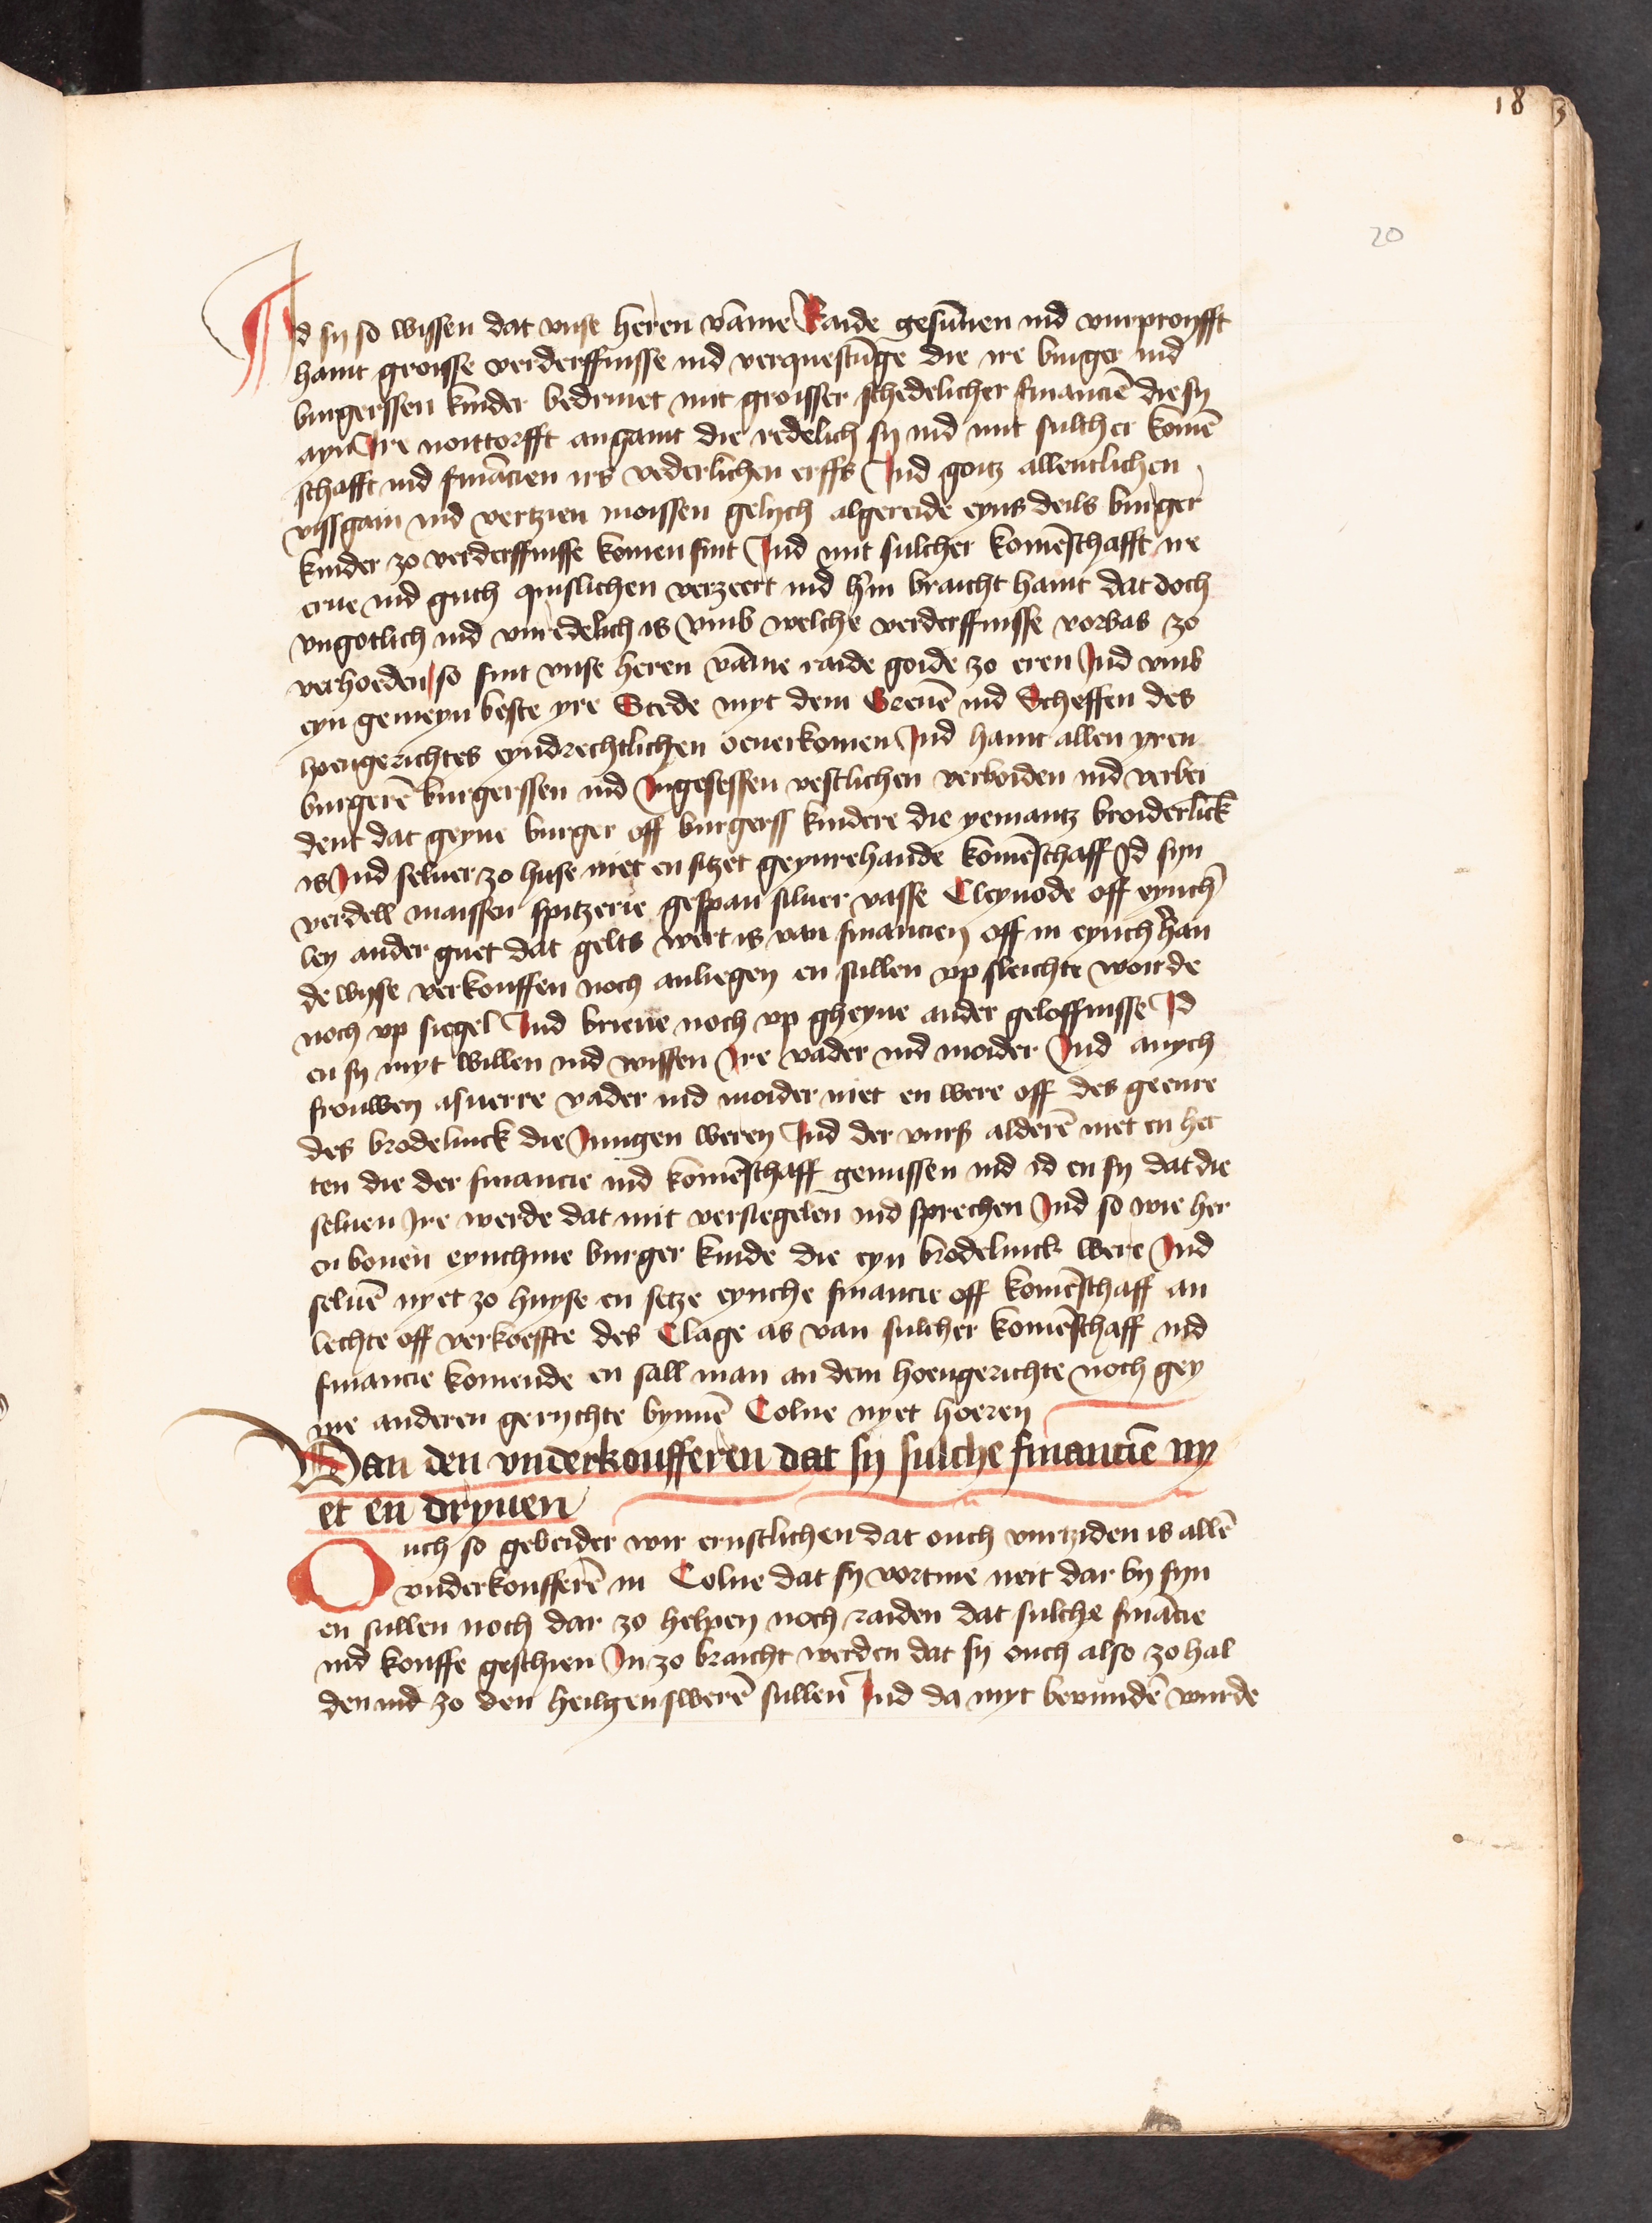 18
20
Id sy so wissen dat vnse heren vãme Raide gesũnen ind vurproyfft
haint groisse verderffnisse ind verquestũge die ire burger ind
burgerssen kinder bedrivet mit groisser schedelicher financiẽ die sy
ayn Ire noittorfft angaint die redelich sy ind mit sulcher komẽ
schafft ind finãcien irs vederlichen erffs Ind goitz allentlichen
vissgain ind vertzien moissen gelijch algereide eyns deils burger
kinder zo verderffnisse komen sint Ind mit sulcher komẽschafft ire
erue ind guth quislichen verzeert ind hin braicht haint dat doch
vngotlich ind vnredelich is vmb welche verderffnisse vorbas zo
verhoeden so sint vnse heren vãme raide goide zo eren Ind vmb
eyn gemeyn beste yre Stede myt dem Greuẽ ind Scheffen des
hoengerichtes eyndrechtlichen oeuerkomen Ind haint allen yren
burgerẽ burgerssen ind Ingesessen vestlichen verboiden ind verbei
dent dat geyne burger off burgerss kindere die yemantz broiderlick
is Ind seluer zo huse niet en sitzet geynrehande komẽschaff Id syn
verdell maissen spitzerie gespan siluer vasse Cleynode off eynch
ley ander guet dat gelts wert is van financien off in eynchhan
de wyse verkouffen noch anliegen en sullen vp sleichte woirde
noch vp siegel Ind brieue noch vp gheyne ander geloffnisse Id
en sy myt willen ind wissen Ire vader ind moider Ind anych
frouwen asuerre vader ind moider niet en were off des geenre
des brodelinck die Jungen weren Ind der vurß alderẽ niet en het
ten die der financie ind komẽschaff genussen ind id en sy dat die
seluen Ire werde dat mit versiegelen ind sprechen Ind so wie her
en bouen eynchme burger kinde die eyn brodelinck were Ind
seluẽ nyet zo huyse en setze eynche financie off komẽschaff an
lechte off verkoeffte des Clage as van sulcher komẽschaff ind
financie komende en sall man an dem hoengerichte noch gey
me anderen gerychte bynnẽ Colne nyet hoeren
Van den vnderkoufferen dat sy sulche financiẽ ny
et en dryuen
Ouch so gebeider wir ernstlichen dat ouch vurtziden is allẽ
vnderkoufferẽ in Colne dat sy vortme neit dar by syn
en sullen noch dar zo helpen noch raiden dat sulche finãcie
ind kouffe geschien In zo braicht werden dat sy ouch also zo hal
den ind zo den heilgen swerẽ sullen Ind da myt bevundẽ wurde